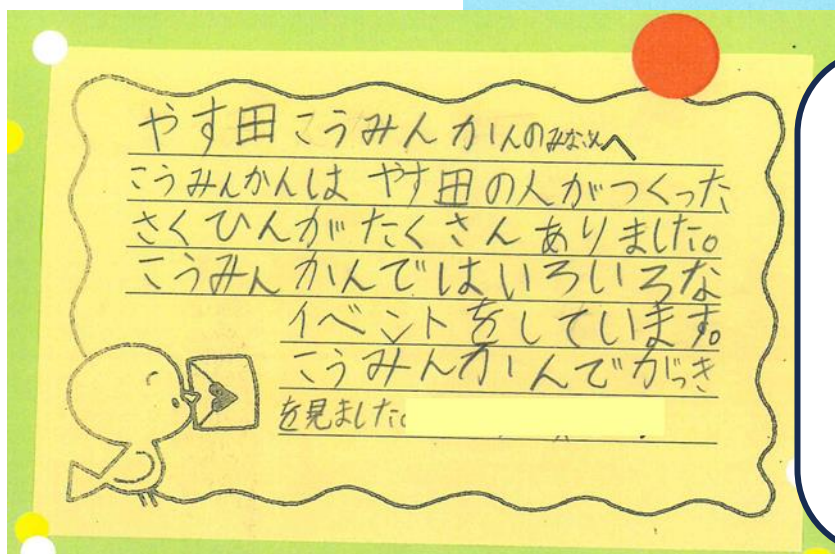 やす田こうみんかんのみなさんへ
こうみんかんは やす田の人がつくった
さくひんがたくさんありました。
こうみんかんではいろいろな
イベントをしています。
こうみんかんでがっき
を見ました。